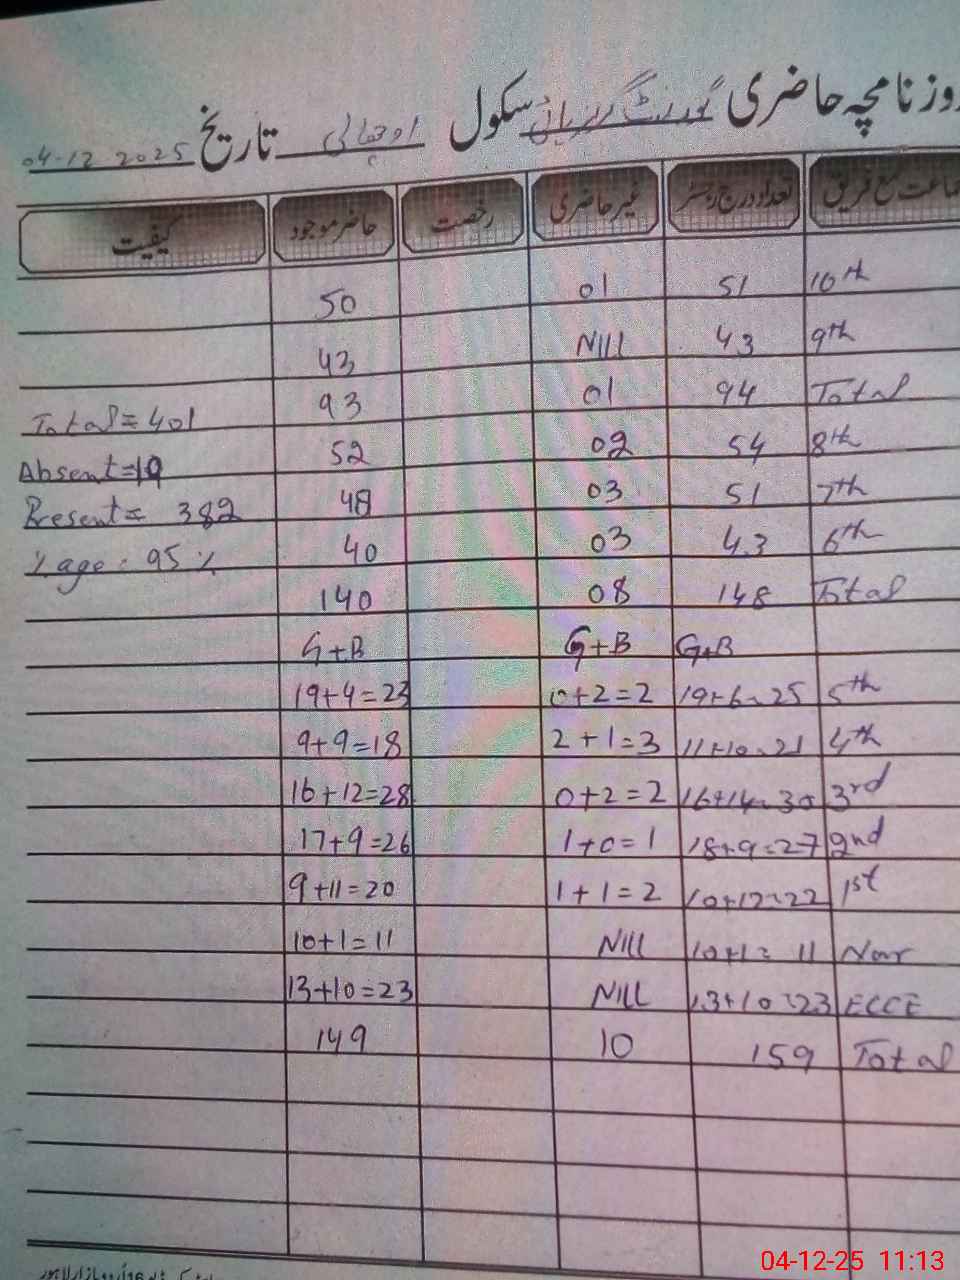 روزنامچہ حاضری گورنمنٹ گرلز ہائی سکول اوچھالی تاریخ 04-12 2025
جماعت مع فریق تعداد درج رجسٹر غیر حاضری رخصت حاضر موجود کیفیت
10th 51 01 50
9th 43 Nill 43
Total 94 01 93 Total = 401
8th 54 02 52 Absent = 19
7th 51 03 48 Present = 382
6th 43 03 40 %age : 95 %
Total 148 08 140
G+B G+B G+B
5th 19+6=25 0+2=2 19+4=23
4th 11+10=21 2+1=3 9+9=18
3rd 16+14=30 0+2=2 16+12=28
2nd 18+9=27 1+0=1 17+9=26
1st 10+12=22 1+1=2 9+11=20
Nur 10+1= 11 Nill 10+1=11
ECCE 13+10=23 Nill 13+10=23
Total 159 10 149
04-12-25 11:13